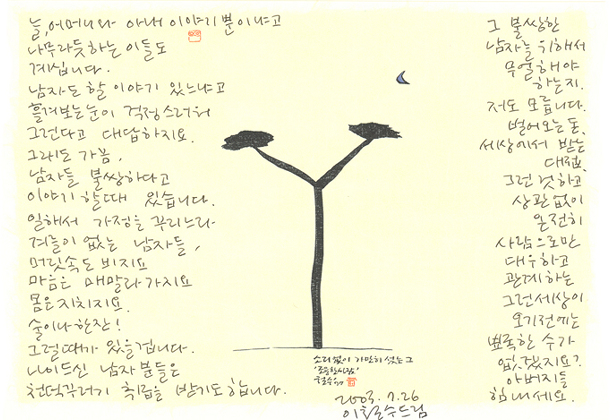 늘, 어머니와 아내 이야기 뿐이냐고
나무라듯하는 이들도
계십니다.
남자도 할 이야기 있느냐고
흘겨보는 눈이 걱정스러워
그런다고 대답하지요.
그래도 가끔,
남자들 불쌍하다고
이야기 할 때 있습니다.
일해서 가정을 꾸리느라
겨를이 없는 남자들,
머릿속도 비지요
마음은 메말라가지요
몸은 지치지요.
술이나 한잔!
그럴때가 있을겁니다.
나이드신 남자분들은
천덕꾸러기 취급을 받기도 합니다.
그 불쌍한
남자를 위해서
무얼해야
하는지.
저도 모릅니다.
벌어오는 돈,
세상에서 받는
대접,
그런 것하고
상관없이
온전히
사람으로만
대우하고
관계하는
그런 세상이
오기전에는
뾰족한 수가
없겠지요?
아버지들
힘내세요.
소리없이 가만히 섰는 그
2003. 7. 26
이철수드림